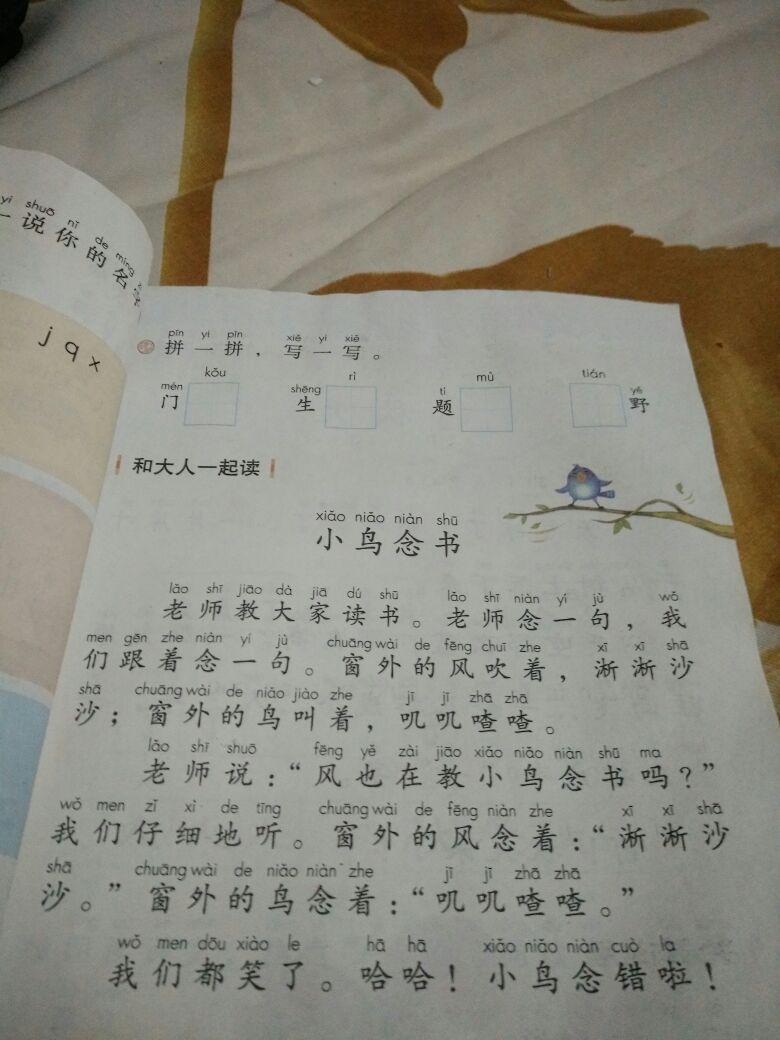 yi shuō nǐ de míng
一说你的名
j q x
pīn yi pīn xiě yi xiě
拼一拼，写一写。
kǒu rì mù tián
mén shēng tí yě
门 生 题 野
和大人一起读
xiǎo niǎo niàn shū
小鸟念书
lǎo shī jiāo dà jiā dú shū lǎo shī niàn yí jù wǒ
老师教大家读书。老师念一句，我
men gēn zhe niàn yí jù chuāng wài de fēng chuī zhe xī xī shā
们跟着念一句。窗外的风吹着，淅淅沙
shā chuāng wài de niǎo jiào zhe jī jī zhā zhā
沙；窗外的鸟叫着，叽叽喳喳。
lǎo shī shuō fēng yě zài jiāo xiǎo niǎo niàn shū ma
老师说：“风也在教小鸟念书吗？”
wǒ men zǐ xì de tīng chuāng wài de fēng niàn zhe xī xī shā
我们仔细地听。窗外的风念着：“淅淅沙
shā chuāng wài de niǎo niàn zhe jī jī zhā zhā
沙。”窗外的鸟念着：“叽叽喳喳。”
wǒ men dōu xiào le hā hā xiǎo niǎo niàn cuò la
我们都笑了。哈哈！小鸟念错啦！